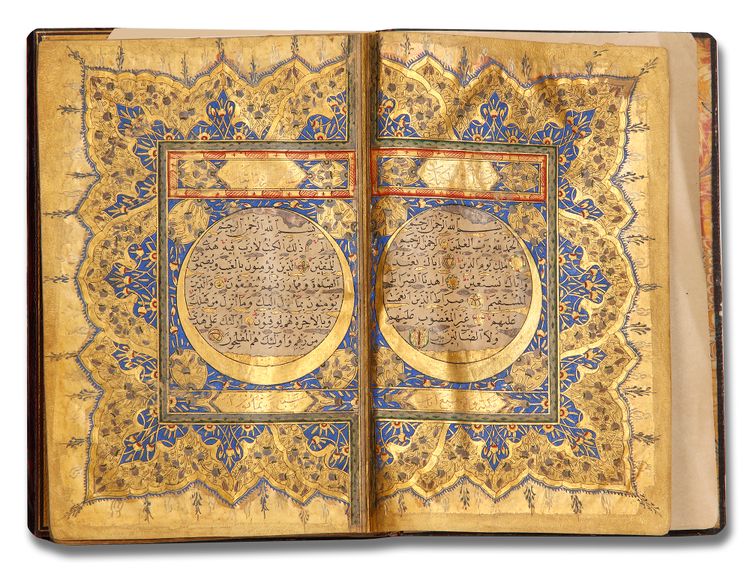 بسم الله الرحمن الرحيم
الحمد لله رب العلمين الرحمن الرحيم
ملك يوم الدين اياك نعبد و
اياك نستعين اهدنا الصراط
المستقيم صراط الذين انعمت
عليهم غير المغضوب عليهم
ولا الضالين
بسم الله الرحمن الرحيم
الم ذلك الكتب لا ريب فيه هدى
للمتقين الذين يؤمنون بالغيب ويقيمون
الصلوة ومما رزقنهم ينفقون والذين
يؤمنون بما انزل اليك وما انزل من قبلك
وبالاخرة هم يوقنون اولئك على هدى
من ربهم واولئك هم المفلحون